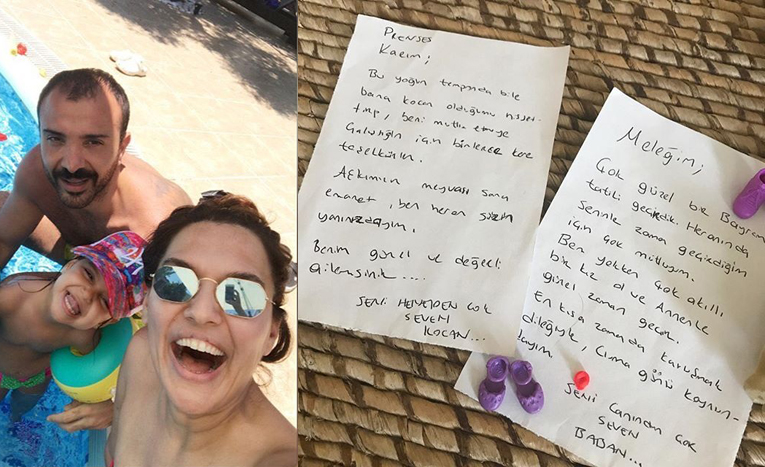 PRENSES
Karım;
Bu yoğun tempında bile
bana kocan olduğumu hisset-
tmp, beni mutlu etmeye
Çalıştığın için binlerce kere
teşekkürler.
Aşkımın meyvası sana
emanet, ben heran sizin
yanınızdayım.
Benim güzel ve değerli
ailemsiniz....
SENİ HERŞEYDEN ÇOK
SEVEN
KOCAN...
Meleğim;
Çok güzel bir Bayram
tatili geçirdik. Heranında
Seninle zaman geçirdiğim
için çok mutluyum.
Ben yokken Çok akıllı
bir kız ol ve Annenle
güzel zaman geçir.
En kısa zamanda kavuşmak
dileğiyle, Cuma günü koynun-
dayım.
Seni Canından Çok
SEVEN
BABAN...